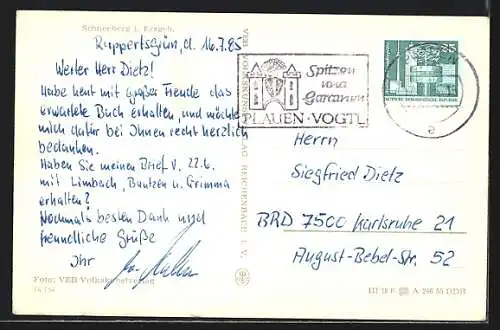 Schneeberg i. Erzgeb.
Ruppertsgrün, d. 16.7.85
Werter Herr Dietz!
Habe heut mit großer Freude das
erwartete Buch erhalten, und möchte
mich dafür bei Ihnen recht herzlich
bedanken.
Haben Sie meinen Brief v. 22.6.
mit Limbach, Buntzen u. Grimma
erhalten?
Nochmals besten Dank und
freundliche Grüße
Ihr
Foto: VEB Volkskunstverlag
VEB VOLKSKUNSTVERLAG REICHENBACH I. V.
Spitzen
und
Gardinen
PLAUEN · VOGTL
25
DEUTSCHE DEMOKRATISCHE REPUBLIK
e
Herrn
Siegfried Dietz
BRD 7500 Karlsruhe 21
August-Bebel-Str. 52
III 18 8 A 246 55 DDR